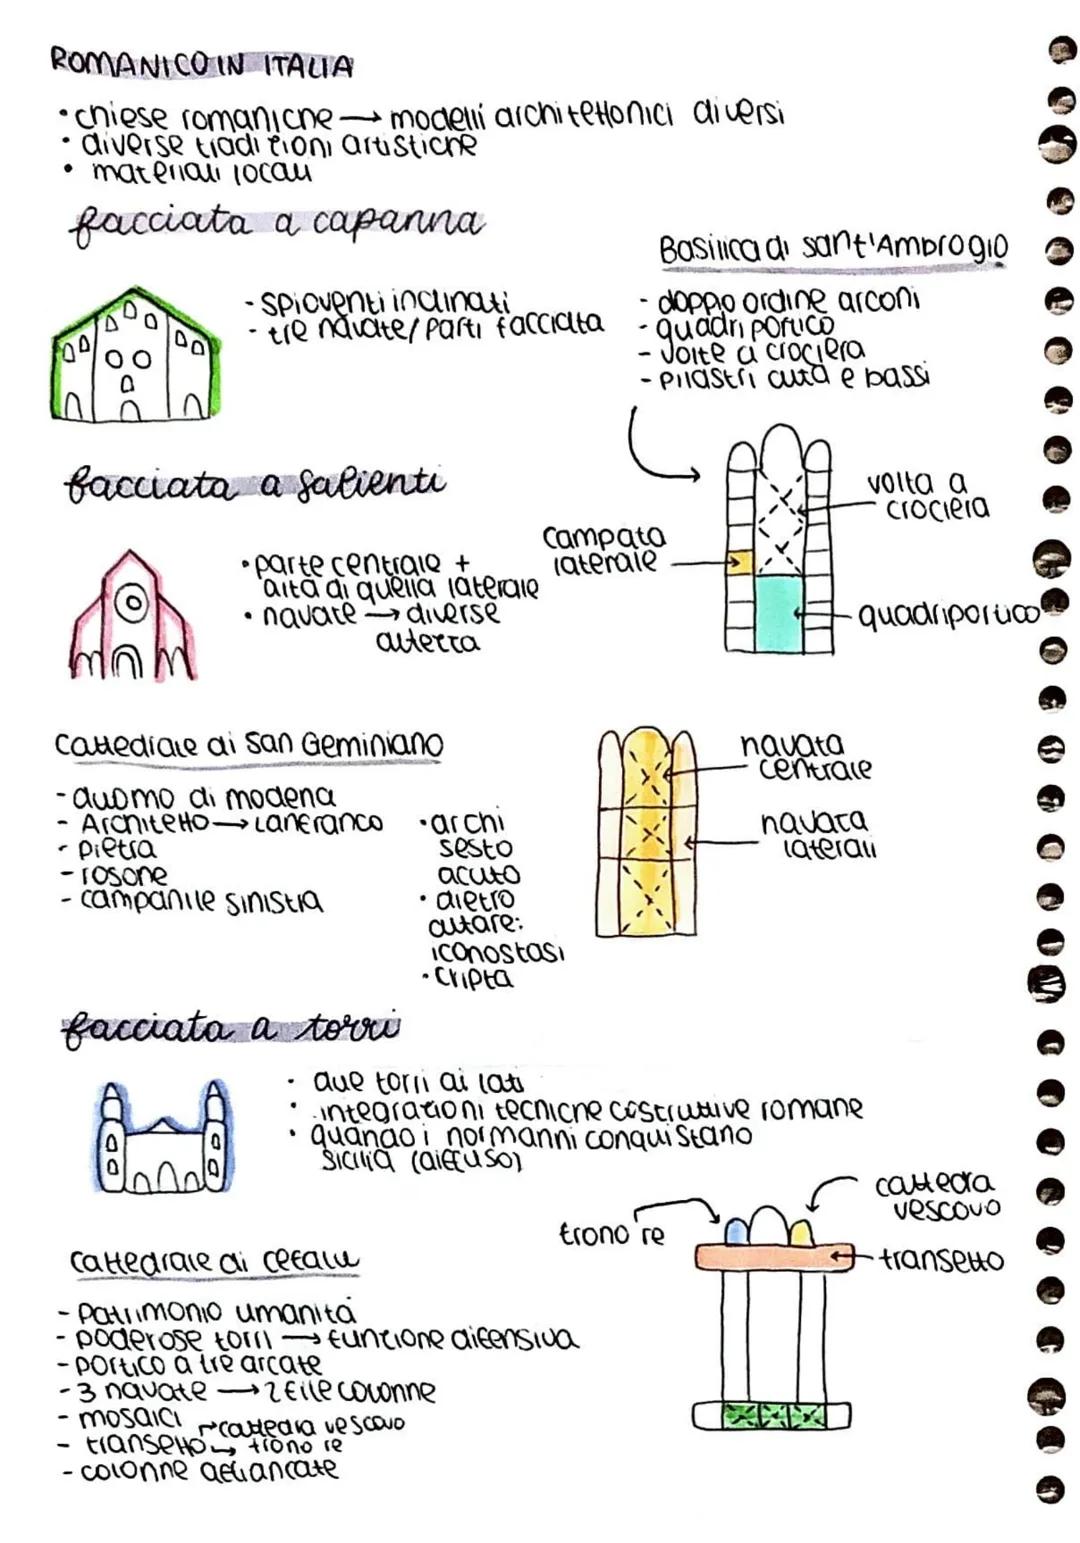 ROMANICO IN ITALIA
• chiese romaniche → modelli architettonici diversi
• diverse tradizioni artistiche
• materiali locali
facciata a capanna
- spioventi inclinati
- tre navate/parti facciata
Basilica di sant'Ambrogio
- doppio ordine arconi
- quadriportico
- volte a crociera
- pilastri alta e bassi
volta a
crociera
campata
laterale
quadriportico
facciata a salienti
• parte centrale +
alta di quella laterale
• navate → diverse
altezza
Cattedrale di San Geminiano
- duomo di modena
- Architetto → Lanfranco
- pietra
- rosone
- campanile sinistra
• archi
sesto
acuto
• dietro
altare:
iconostasi
• cripta
navata
centrale
navata
laterali
facciata a torri
• due torri ai lati
• integrazioni tecniche costruttive romane
• quando i normanni conquistano
sicilia (diffuso)
trono re
cattedra
vescovo
transetto
Cattedrale di cefalu
- Patrimonio umanità
- poderose torri → funzione difensiva
- portico a tre arcate
- 3 navate → 2 file colonne
- mosaici
cattedra vescovo
- transetto → trono re
- colonne affiancate